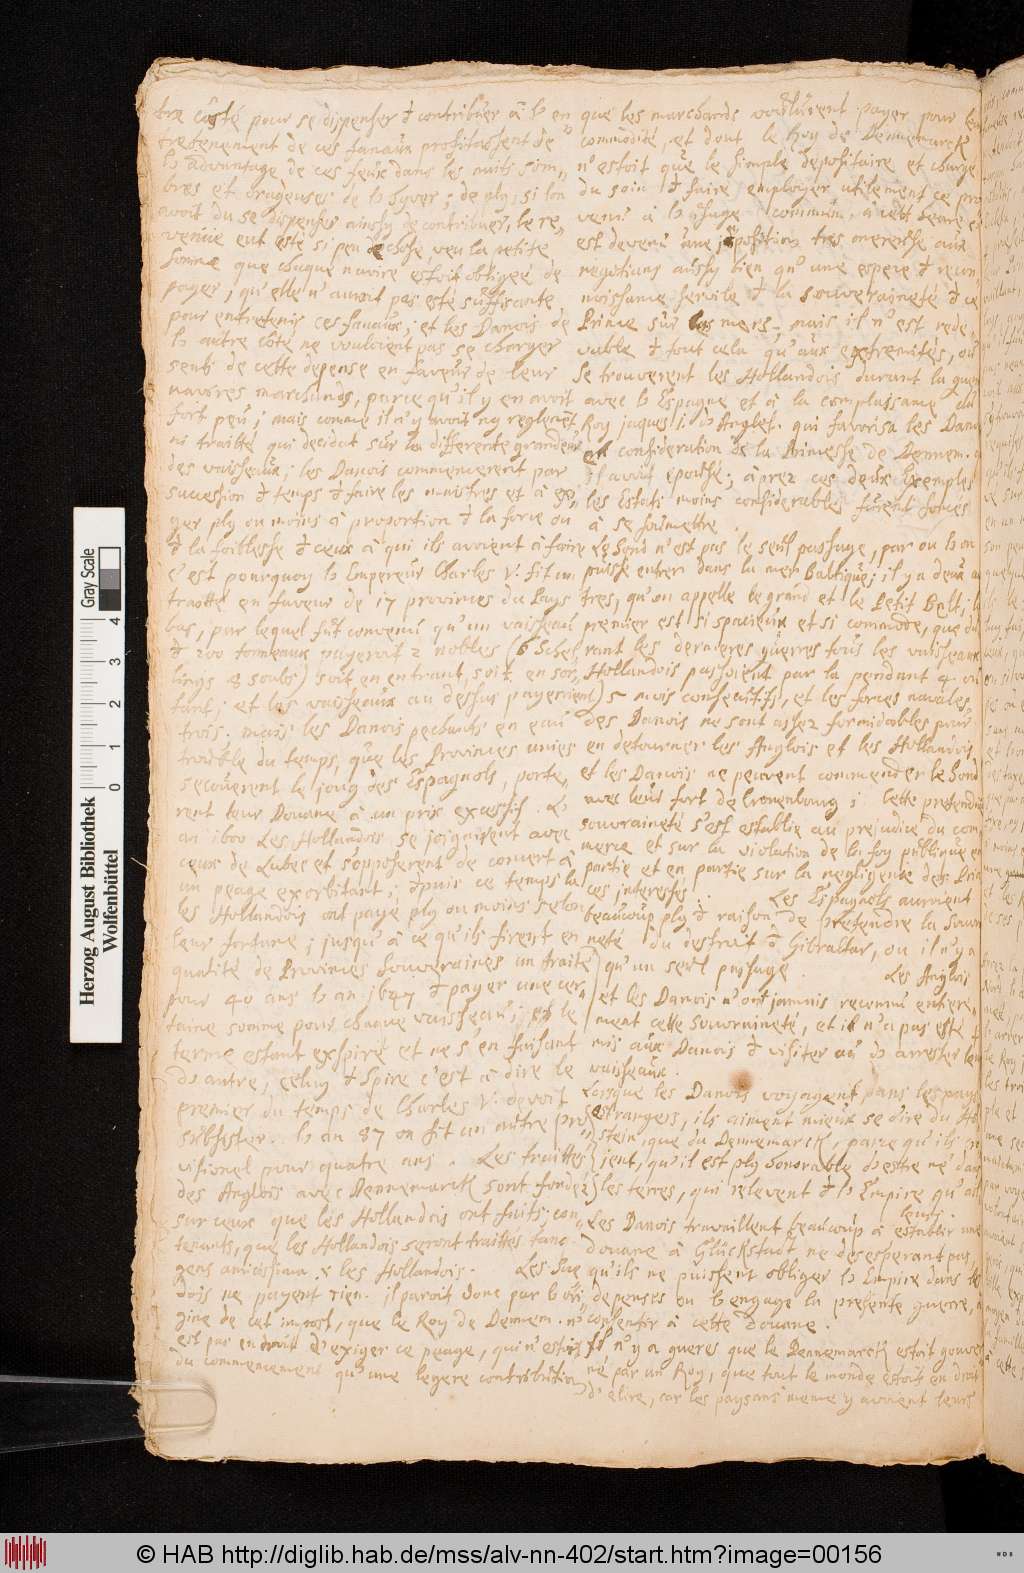 tre côsté pour se dispenser d contribuer â l'en
tretenement de ces fanaux profitassent de
l'advantage de ces feux dans les nuits som„
bres et orageuses de l'hyver; de plg, si lon
avoit du se dispenser ainsy de contribuer, le re„
venüe eut esté si peu de chose, veu la petite
somme que chaque navire estoit obligée de
payer; qu'elle n'auroit pas esté süffisante
pour entretenir ces fanaux; et les Danois de
l'autre côté ne vouloient pas se charger
seuls de cette depense en faveur de leur
navires marchands, parce qu'il y en avoit
fort peu; mais comme il n'y avoit ny reglement
ni traitté qui decidat sür la differente grandeur
des vaisseaux; les Danois commencerent par
sucession d temps d faire les maistres et à exi„
ger plg ou moins à proportion d la force ou
d la foiblesse d ceux à qui ils avoient à faire
c'est pourquoy l'Empereur Charles V. fit un
traitté en faveur de 17 provinces du Pays
bas, par lequel fût convenu qu'un vaisseau
d 200 tonneaux payeroit 2 nobles (6 Schel
lings 8 souls) soit en entrant, soit en sor„
tant; et les vaisseaux au dessus payerient
trois. mais les Danois pechants en eau
trouble du temps, que les Provinces unies
secouerent le joug des Espagnols, porte„
rent leur Douane à un prix excessif L'
an 1600 Les Hollandois se joignirent avec
ceux de Lubec et s'opposerent de concert à
un peage exorbitant; depuis ce temps la
les Hollandois ont payé plg ou moins selon
leur fortune; jusqu'à ce qu'ils firent en
qualité de Provinces Souveraines un traité
pour 40 ans l'an 1647 d payer une cer„
taine somme pour chaque vaisseau; le
terme estant expiré et ne s'en faisant
d'autre, celuy d Spire c'est à dire le
premier du temps de Charles V. devoit
subsister. L'an 87 on fit un autre pro„
visionel pour quatre ans. Les traittes
des Anglois avec Dennemarck sont fondez
sur ceux que les Hollandois ont faits; con„
tenants, que les Hollandois seront traittés tanq.
gens amicissima. x les Hollandois. Les Sue
dois ne payent rien. il paroit donc par l'ori„
gine de cet impost, que le Roy de Dennem. n'
est pas en droit d'exiger ce peage, qui n'estoit
du commencement qu'une legere contribution
que les marchands voulürent payer pour leur
commodité, et dont le Roy de Dennemarck
n'estoit que le simple depositaire et chargé
du soin d faire employer utilement ce pro
venu à l'usage commun, à cett heure c'
est devenu une imposition tres onereuse aux
negotians aussy bien qu'une espece d recon
noissance servile d la souveraineté d ce
Prince sür les mers. mais il n'est rede„
vable d tout cela qu'aux extremités, où
se trouverent les Hollandois durant la guer
avec l'Espagne et à la complaisance du
Roy jaques I. d'Anglet. qui favorisa les Dan
en consideration de la Princesse de Dennem.
il avoit épousée; àprez ces deux Exemples
les Estats moins considerables fürent forcés
à se soumettre.
Le Sond n'est pas le seul passage, par ou l'on
puisse entrer dans la mer Baltique; il y a deux au
tres, qu'on appelle le grand et le Petit Belt; le
premier est si spacieux et si commode, que du
rant les dernieres güerres tous les vaisseaux
Hollandois passoient par la pendant 4 ou
5 mois consecutifs, et les forces navales
des Danois ne sont assez formidables pour
en detourner les Anglois et les Hollandois
et les Danois ne peuvent commender le Sond
avec leur fort de Cronenbourg; Cette pretendue
souvraineté s'est establie au prejudice du com
merce et sur la violation de la foy publique en
partie et en partie sur la negligence des Prin
ces interessés. Les Espagnols auroient
beaucoup plg d raison de pretendre la Souvrai
neté du destroit d Gibraltar, ou il n'y a
qu'un seul passage. Les Anglois
et les Danois n'ont jamais reconnu entiere„
ment cette Souvraineté, et il n'a pas esté p
mis aux Danois d visiter oü d'arrester leur
vaisseaux.
Lorsque les Danois voyagent dans les pays
estrangers, ils aiment mieux se dire du Ho
stein, que du Dennemarck, parce qu'ils cro
jent, qu'il est plg honorable d'estre né dans
les terres, qui relevent d l'Empire qu'ail
leurs.
Les Danois travaillent beaucoup à establir une
douane à Glückstadt, ne desesperant pas
qu'ils ne puissent obliger l'Empire dans les
depenses ou l'engage la presente guerre,
consentir à cette douane.
Il n'y a gueres que le Dennemarck estoit gouver
né par un Roy, que tout le monde estoit en droit
d'elire, car les paysans meme y avoient leurs
Herzog August Bibliothek
Wolfenbüttel
0 1 2 3 4
Gray Scale
© HAB http://diglib.hab.de/mss/alv-nn-402/start.htm?image=00156